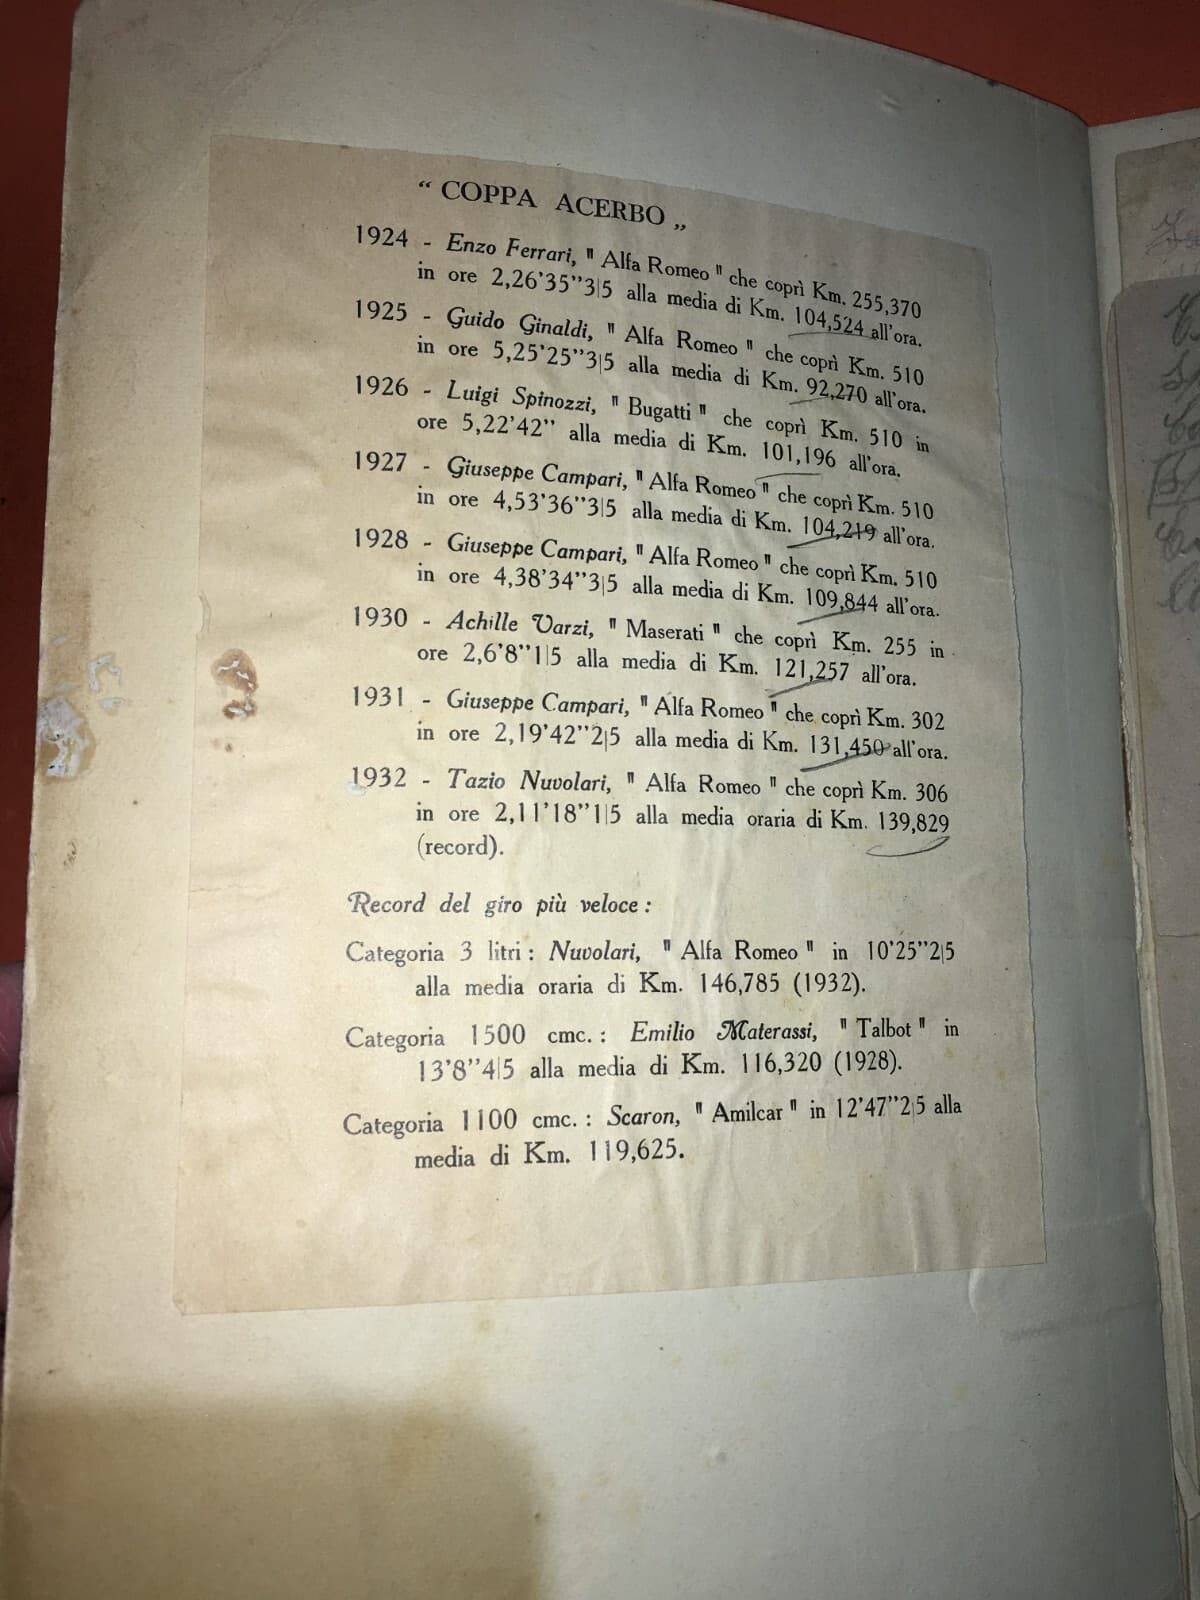 “ COPPA ACERBO „
1924 - Enzo Ferrari, " Alfa Romeo " che coprì Km. 255,370
in ore 2,26'35''3|5 alla media di Km. 104,524 all'ora.
1925 - Guido Ginaldi, " Alfa Romeo " che coprì Km. 510
in ore 5,25'25''3|5 alla media di Km. 92,270 all'ora.
1926 - Luigi Spinozzi, " Bugatti " che coprì Km. 510 in
ore 5,22'42'' alla media di Km. 101,196 all'ora.
1927 - Giuseppe Campari, " Alfa Romeo " che coprì Km. 510
in ore 4,53'36''3|5 alla media di Km. 104,219 all'ora.
1928 - Giuseppe Campari, " Alfa Romeo " che coprì Km. 510
in ore 4,38'34''3|5 alla media di Km. 109,844 all'ora.
1930 - Achille Varzi, " Maserati " che coprì Km. 255 in
ore 2,6'8''1|5 alla media di Km. 121,257 all'ora.
1931 - Giuseppe Campari, " Alfa Romeo " che coprì Km. 302
in ore 2,19'42''2|5 alla media di Km. 131,450 all'ora.
1932 - Tazio Nuvolari, " Alfa Romeo " che coprì Km. 306
in ore 2,11'18''1|5 alla media oraria di Km. 139,829
(record).
Record del giro più veloce :
Categoria 3 litri : Nuvolari, " Alfa Romeo " in 10'25''2|5
alla media oraria di Km. 146,785 (1932).
Categoria 1500 cmc. : Emilio Materassi, " Talbot " in
13'8''4|5 alla media di Km. 116,320 (1928).
Categoria 1100 cmc. : Scaron, " Amilcar " in 12'47''2|5 alla
media di Km. 119,625.